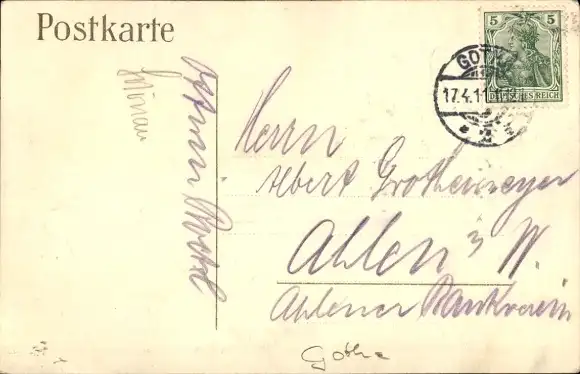 Postkarte
5 5
DEUTSCHES REICH
GOTHA
17.4.11
Herrn
Albert Grothemeyer
Ahlen i/W.
Ahlener Bankverein
Gotha